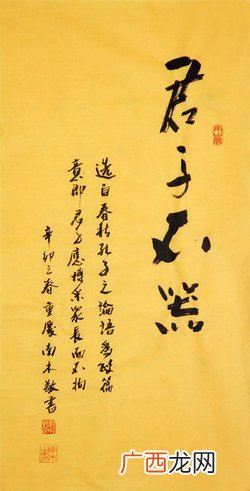 君子不器
选自春秋孔子之论语为政篇
意即君子应博众家长而不拘
辛卯之春重庆南木敬书
广西龙网